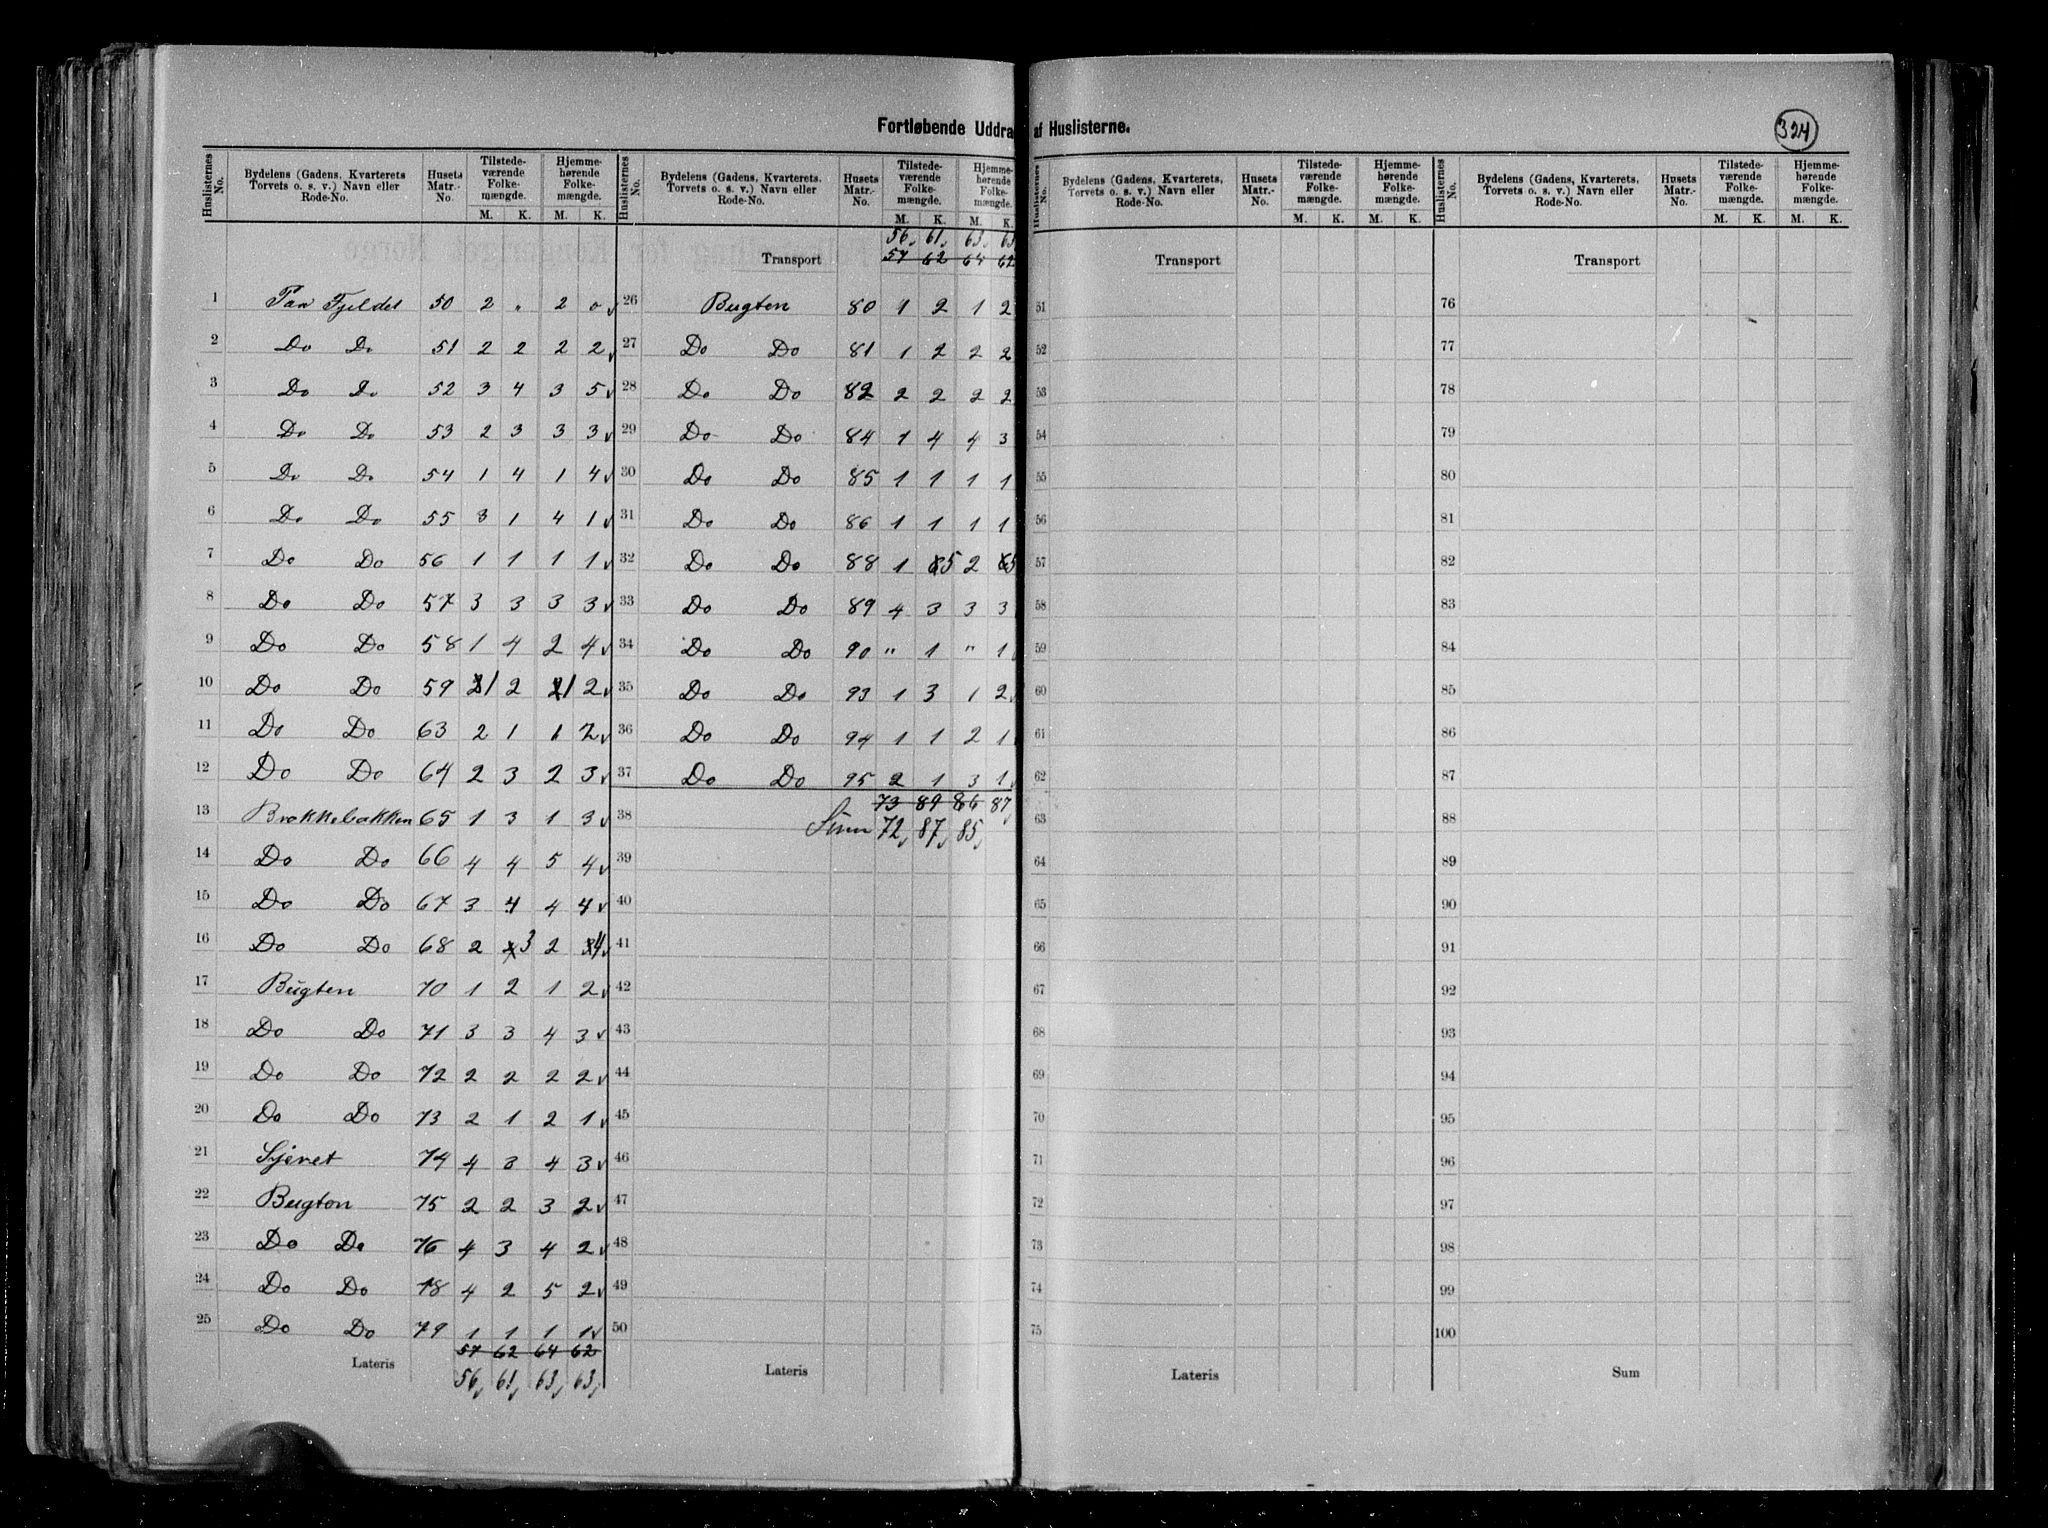 Fortløbende Uddra af Huslisterne.
324
Huslisternes No. | Bydelens (Gadens, Kvarterets Torvets o. s. v.) Navn eller Rode-No. | Husets Matr.-No. | Tilstede-værende Folke-mængde. M. K. | Hjemme-hørende Folke-mængde. M. K.
1 Paa Fjeldet 50 2 „ 2 0
2 Do Do 51 2 2 2 2
3 Do Do 52 3 4 3 5
4 Do Do 53 2 3 3 3
5 Do Do 54 1 4 1 4
6 Do Do 55 3 1 4 1
7 Do Do 56 1 1 1 1
8 Do Do 57 3 3 3 3
9 Do Do 58 1 4 2 4
10 Do Do 59 1 2 1 2
11 Do Do 63 2 1 1 2
12 Do Do 64 2 3 2 3
13 Brækkebakken 65 1 3 1 3
14 Do Do 66 4 4 5 4
15 Do Do 67 3 4 4 4
16 Do Do 68 2 3 2 4
17 Bugten 70 1 2 1 2
18 Do Do 71 3 3 4 3
19 Do Do 72 2 2 2 2
20 Do Do 73 2 1 2 1
21 74 4 3 4 3
22 Bugten 75 2 2 3 2
23 Do Do 76 4 3 4 2
24 Do Do 78 4 2 5 2
25 Do Do 79 1 1 1 1
57 62 64 62
Lateris
56 61 63 63
Huslisternes No. | Bydelens (Gadens, Kvarterets, Torvets o. s. v.) Navn eller Rode-No. | Husets Matr.-No. | Tilstede-værende Folke-mængde. M. K. | Hjemme-hørende Folke-mængde. M. K.
56 61 63 63
Transport 57 62 64 62
26 Bugten 80 1 2 1 2
27 Do Do 81 1 2 2 2
28 Do Do 82 2 2 2 2
29 Do Do 84 1 4 4 3
30 Do Do 85 1 1 1 1
31 Do Do 86 1 1 1 1
32 Do Do 88 1 5 2 5
33 Do Do 89 4 3 3 3
34 Do Do 90 „ 1 „ 1
35 Do Do 93 1 3 1 2
36 Do Do 94 1 1 2 1
37 Do Do 95 2 1 3 1
73 89 86 87
38 Sum 72 87 85
39
40
41
42
43
44
45
46
47
48
49
50
Lateris
Huslisternes No. | Bydelens (Gadens, Kvarterets, Torvets o. s. v.) Navn eller Rode-No. | Husets Matr.-No. | Tilstede-værende Folke-mængde. M. K. | Hjemme-hørende Folke-mængde. M. K.
Transport
51
52
53
54
55
56
57
58
59
60
61
62
63
64
65
66
67
68
69
70
71
72
73
74
75
Lateris
Huslisternes No. | Bydelens (Gadens, Kvarterets, Torvets o. s. v.) Navn eller Rode-No. | Husets Matr.-No. | Tilstede-værende Folke-mængde. M. K. | Hjemme-hørende Folke-mængde. M. K.
Transport
76
77
78
79
80
81
82
83
84
85
86
87
88
89
90
91
92
93
94
95
96
97
98
99
100
Sum